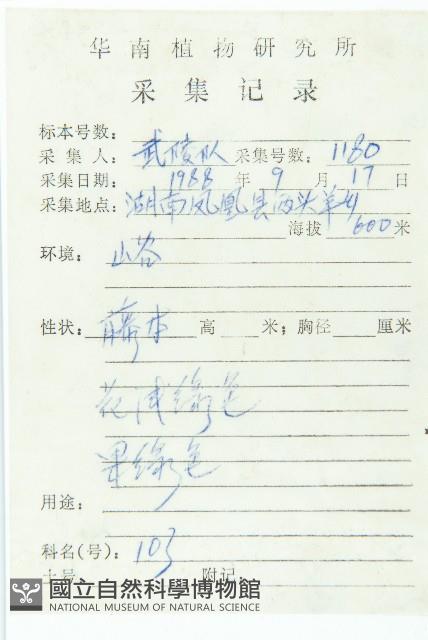 华南植物研究所
采集记录
标本号数：
采集人：武陵队 采集号数：1180
采集日期：1988年9月17日
采集地点：湖南凤凰县两头羊
海拔 600 米
环境：山谷
性状：藤本 高 米；胸径 厘米
花浅绿色
果绿色
用途：
科名(号)：103
土名 附记
國立自然科學博物館
NATIONAL MUSEUM OF NATURAL SCIENCE